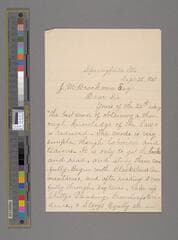 Springfield, Ills.
Sept. 25, 1860
J. M. Brockman Esq
Dear Sir
Yours of the 24th asking
"the best mode of obtaining a tho-
rough knowledge of the law"
is received. The mode is very
simple, though laborious and
tedious. It is only to get the books
and read, and study them care-
fully. Begin with Blackstone's Com-
mentaries, and after reading it care-
fully through, say twice, take up
Chitty's Pleading, Greenleaf's Evi-
dence, & Story's Equity &c. in